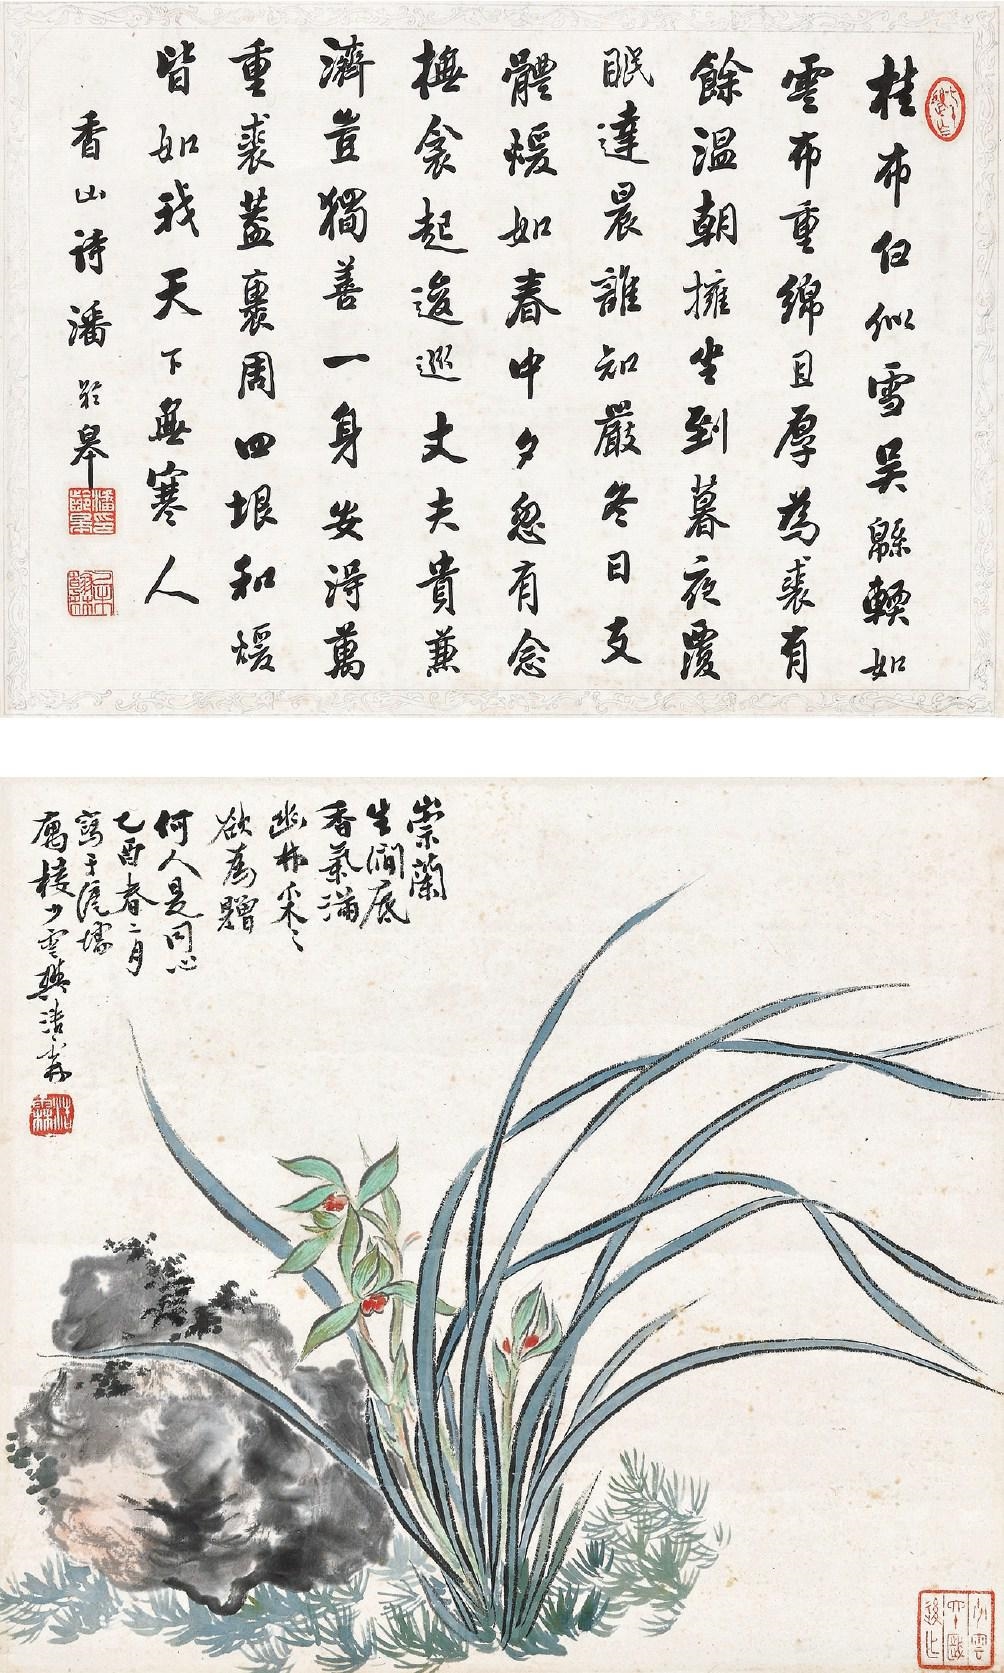 桂布白似雪吴緜輭如
雲布重綿且厚為裘有
餘温朝擁坐到暮夜覆
眠達晨誰知嚴冬日支
體煖如春中夕忽有念
撫衾起逡巡丈夫貴兼
濟豈獨善一身安得萬
重裘蓋裹周四垠和煖
皆如我天下無寒人
香山詩潘齡皋
崇蘭
生澗底
香氣滿
幽林采采
欲為贈
何人是同心
乙酉春二月
寫于滬壖
少雲樊浩霖